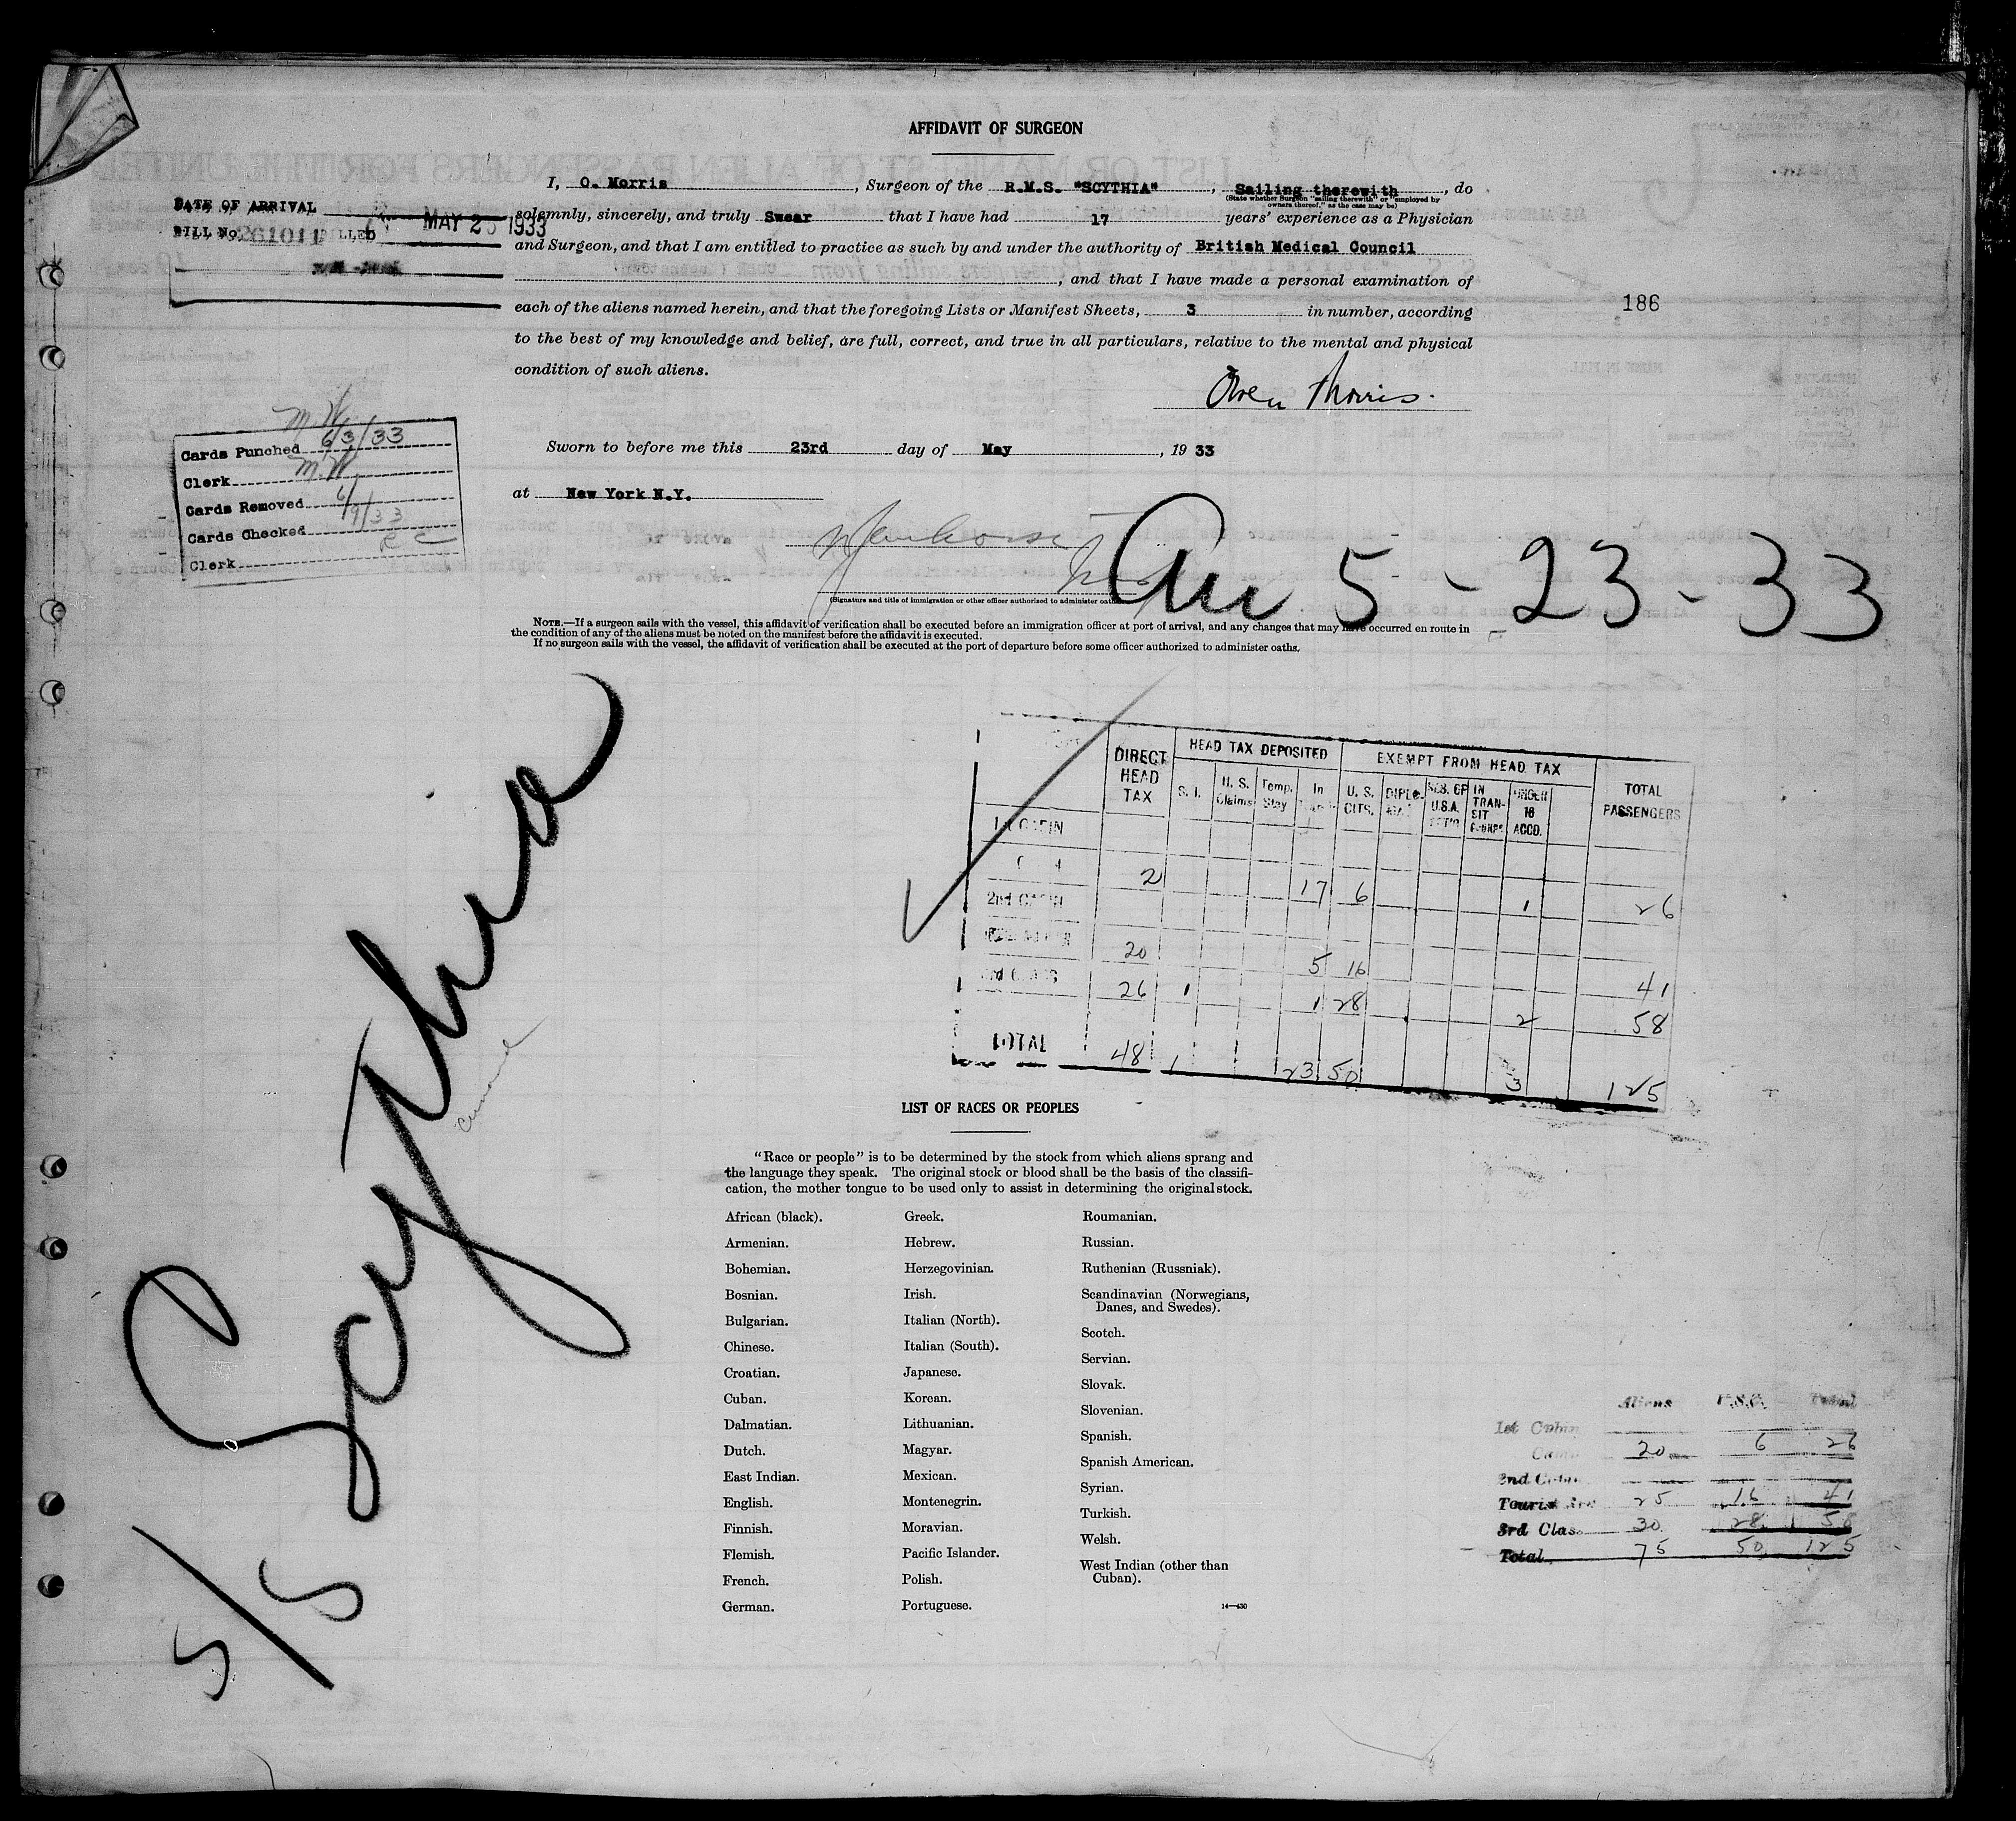 AFFIDAVIT OF SURGEON
I, O. Morris, Surgeon of the R.M.S. "SCYTHIA", Sailing therewith, do
(State whether Surgeon "sailing therewith" or "employed by
owners thereof," as the case may be)
solemnly, sincerely, and truly Swear that I have had 17 years' experience as a Physician
and Surgeon, and that I am entitled to practice as such by and under the authority of British Medical Council
, and that I have made a personal examination of
each of the aliens named herein, and that the foregoing Lists or Manifest Sheets, 3 in number, according
to the best of my knowledge and belief, are full, correct, and true in all particulars, relative to the mental and physical
condition of such aliens.
Owen Morris.
DATE OF ARRIVAL MAY 23 1933
BILL No. 261011 BILLED
186
Sworn to before me this 23rd day of May, 19 33
at New York N.Y.
M.W.
Cards Punched 6/3/33
Clerk M.W.
Cards Removed 6/
Cards Checked 19/33
Clerk R C
(Signature and title of immigration or other officer authorized to administer oaths)
Arr 5-23-33
NOTE.—If a surgeon sails with the vessel, this affidavit of verification shall be executed before an immigration officer at port of arrival, and any changes that may have occurred en route in
the condition of any of the aliens must be noted on the manifest before the affidavit is executed.
If no surgeon sails with the vessel, the affidavit of verification shall be executed at the port of departure before some officer authorized to administer oaths.
S/S Scythia
Cunard
DIRECT HEAD TAX HEAD TAX DEPOSITED EXEMPT FROM HEAD TAX TOTAL PASSENGERS
S. I. U. S. Claims Temp. Stay In U. S. CITS. IN TRANSIT UNDER 16 ACCD.
1st CABIN
2 17 6 1 26
2nd CABIN
20 5 16 41
3rd CLASS 26 1 1 28 2 58
TOTAL 48 1 23 50 3 125
LIST OF RACES OR PEOPLES
"Race or people" is to be determined by the stock from which aliens sprang and
the language they speak. The original stock or blood shall be the basis of the classifi-
cation, the mother tongue to be used only to assist in determining the original stock.
African (black).
Armenian.
Bohemian.
Bosnian.
Bulgarian.
Chinese.
Croatian.
Cuban.
Dalmatian.
Dutch.
East Indian.
English.
Finnish.
Flemish.
French.
German.
Greek.
Hebrew.
Herzegovinian.
Irish.
Italian (North).
Italian (South).
Japanese.
Korean.
Lithuanian.
Magyar.
Mexican.
Montenegrin.
Moravian.
Pacific Islander.
Polish.
Portuguese.
Roumanian.
Russian.
Ruthenian (Russniak).
Scandinavian (Norwegians,
Danes, and Swedes).
Scotch.
Servian.
Slovak.
Slovenian.
Spanish.
Spanish American.
Syrian.
Turkish.
Welsh.
West Indian (other than
Cuban).
14—430
Aliens U.S.C. Total
1st Cabin
20 6 26
2nd Cabin
Tourist 25 16 41
3rd Class 30 28 58
Total 75 50 125